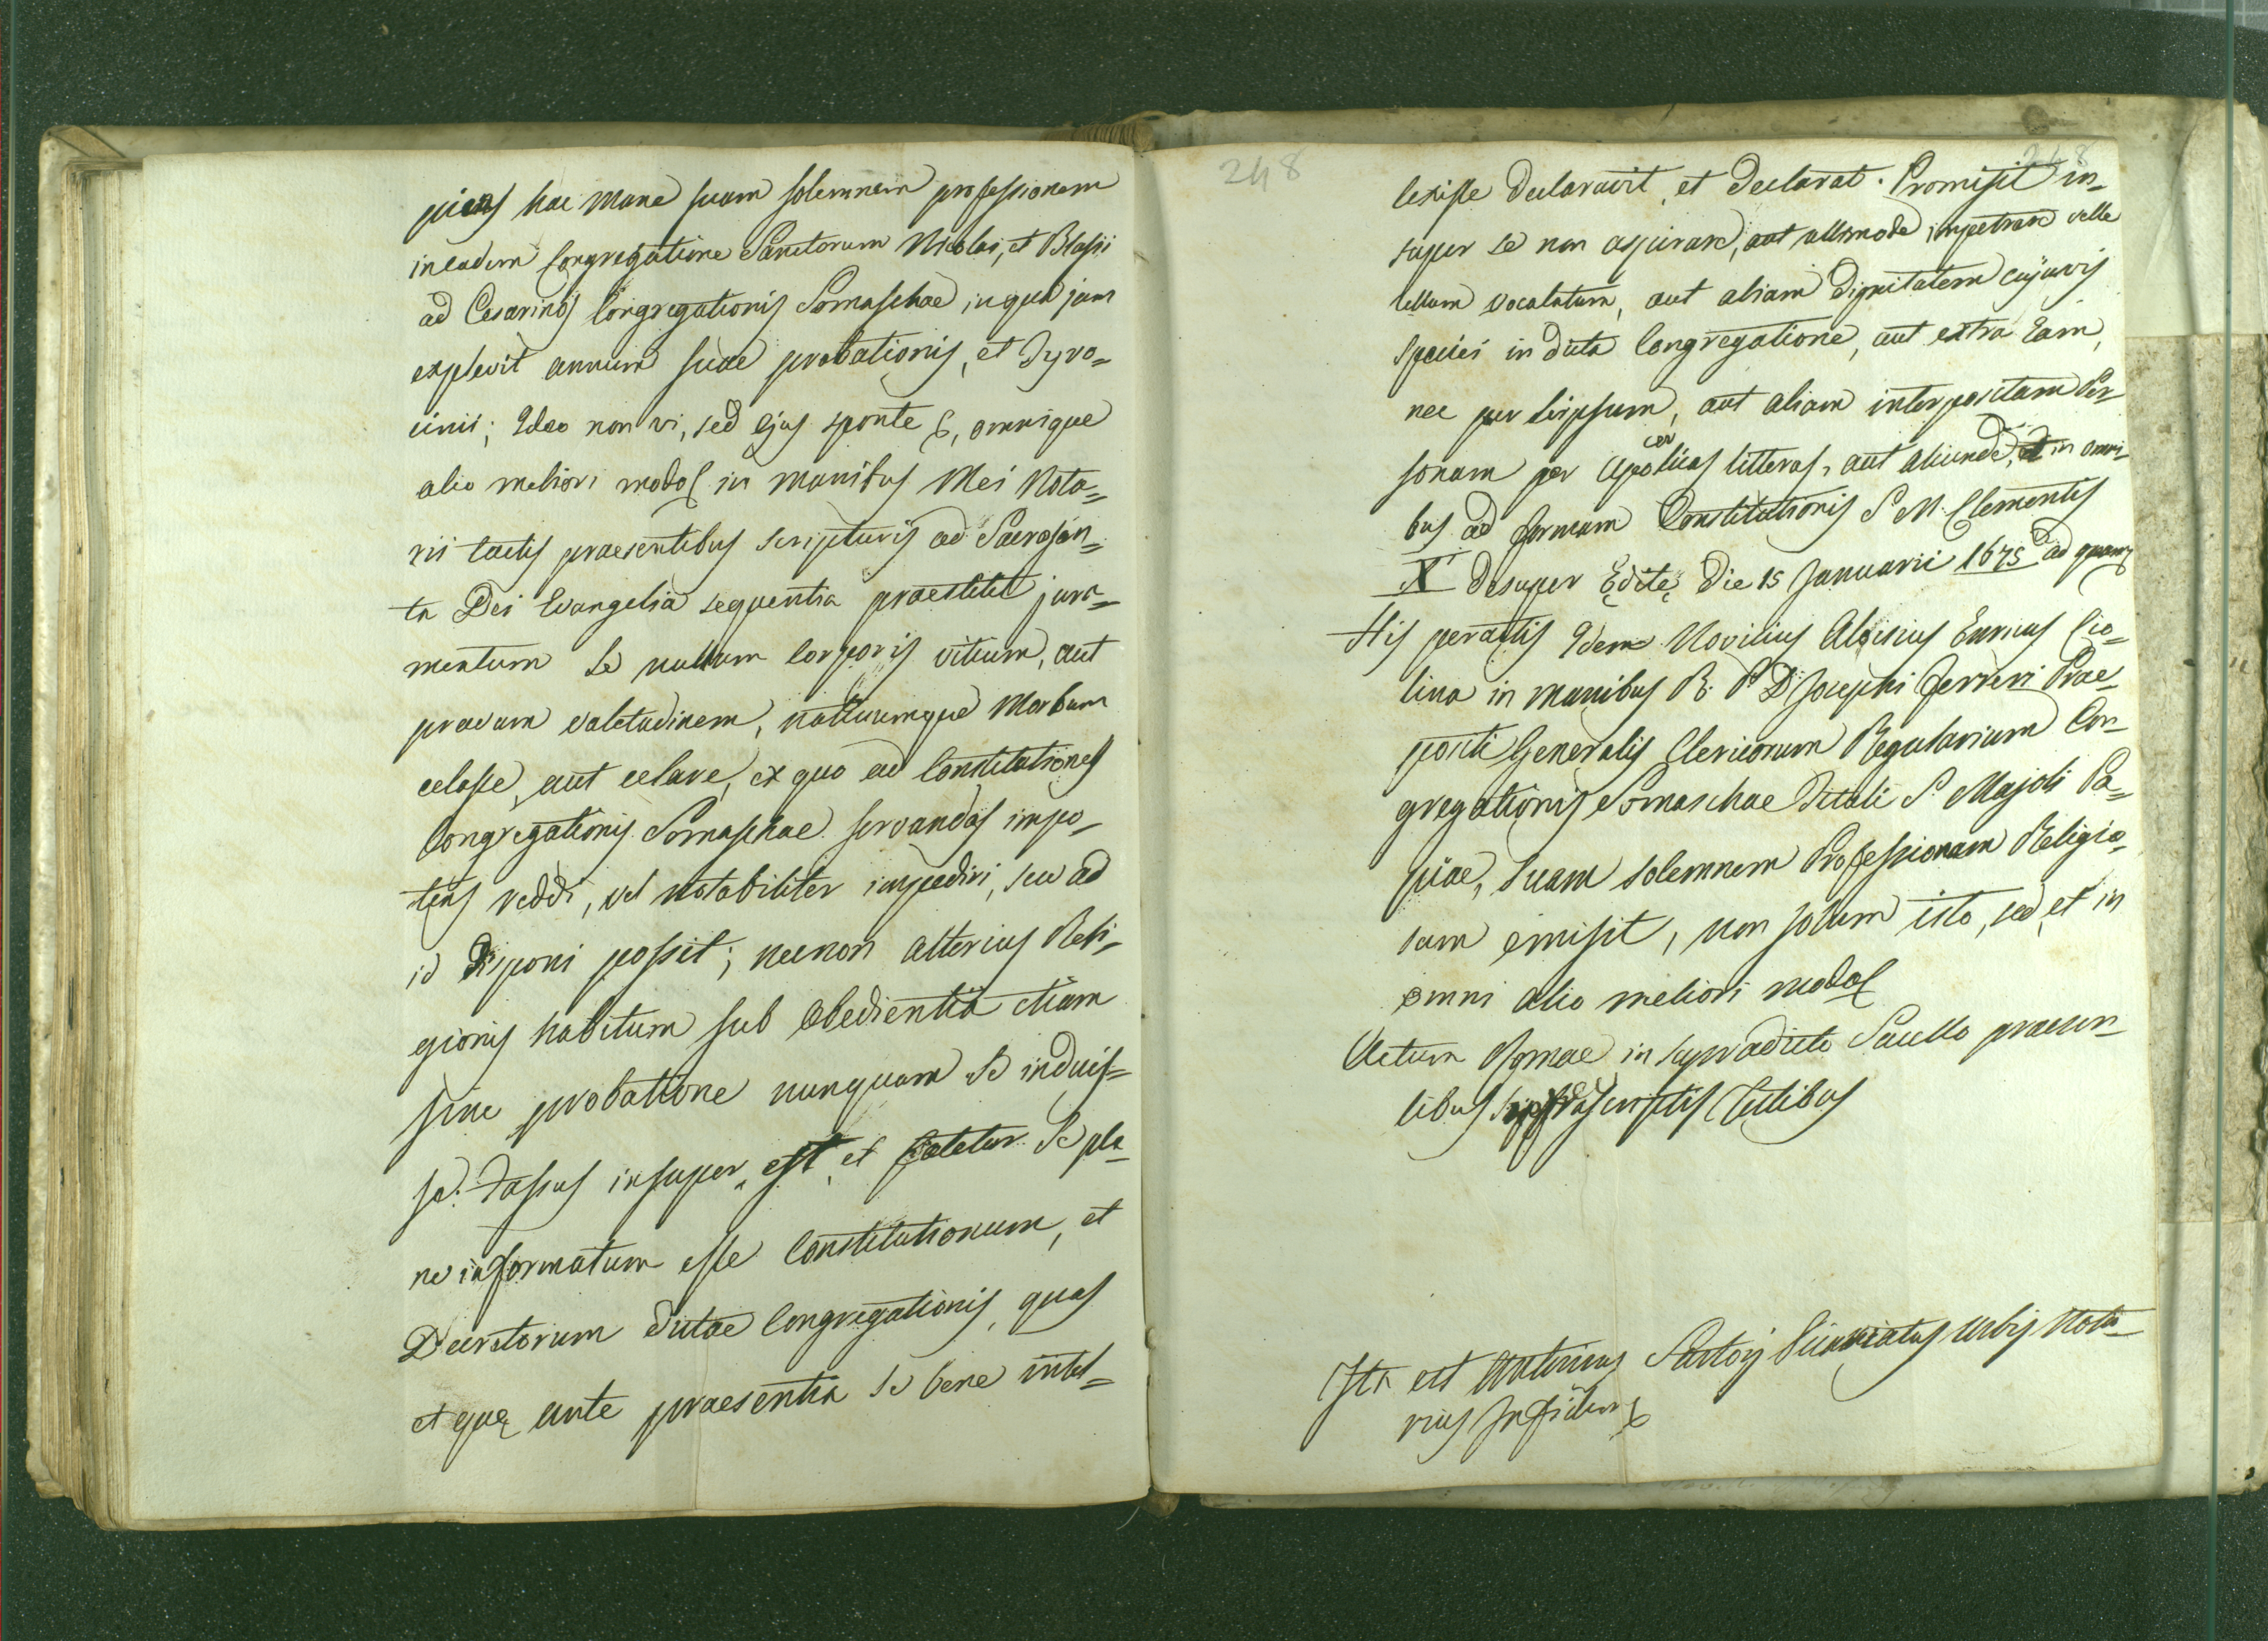 piens hac mane suam solemnem professionem
in eadem Congregatione Sanctorum Nicolai, et Blasii
ad Cesarinos Congregationis Somaschae in qua jam
explevit annum suae probationis, et Tyro=
cinii; Ideo non vi, sed ejus sponte &, omnique
alio meliori modo& in manibus Mei Nota=
rii tactis praesentibus scripturis ad Sacrosan=
ta Dei Evangelia sequentia praestitit jura=
mentum se nullum corporis vitium, aut
pravam valetudinem, nullumque Morbum
celasse, aut celare, ex quo ad Constitutiones
Congregationis Somaschae servandas impo=
tens reddi, vel notabiliter impediri, seu ad
id disponi possit; necnon alterius Reli=
gionis habitum sub Obedientia etiam
sine probatione nunquam se induis=
se. Fassus insuper est, et fatetur se ple
ne informatum esse Constitutionum, et
Decretorum dictae Congregationis, quas
et quę ante praesentia se bene intel=
248
248
lexisse declaravit, et declarat. Promisit in=
super se non aspirare, aut ullomodo impetrare velle
ullum vocalatum, aut aliam dignitatem cujusvis
speciei in dicta Congregatione, aut extra Eam,
nec per seipsum, aut aliam interpositam Per=
sonam per Apolicas litteras, aut aliunde, et in omni=
bus ad formam Constitutionis S. M. Clementis
X desuper Editę die 15 Januarii 1675 ad quam&
His peractis Idem Novitius Aloisius Enricus Cio=
lina in manibus R. P. D. Josephi Ferreri Prae=
positi Generalis Clericorum Regularium Con=
gregationis Somaschae Tituli S. Majoli Pa=
piae, suam solemnem Professionem Religio=
sam emisit, non solum isto, sed et in
omni alio meliori modo&
Actum Romae in supradicto Sacello praesen=
tibus suprascriptis Testibus
Ita est Antonius Sartorj Vicariatus Urbis Nota=
rius In fidem &